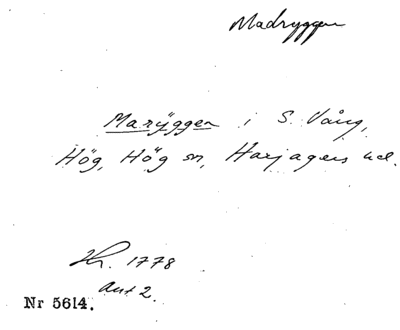 Madryggen
Marÿggen i S. Vång,
Hög, Hög sn, Harjagers hd.
1778
akt 2.
Nr 5614.